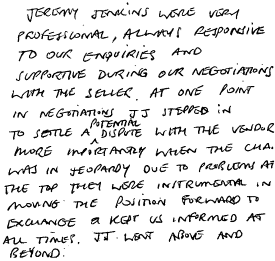 JEREMY JENKINS WERE VERY
PROFESSIONAL, ALWAYS RESPONSIVE
TO OUR ENQUIRIES AND
SUPPORTIVE DURING OUR NEGOTIATIONS
WITH THE SELLER. AT ONE POINT
IN NEGOTIATIONS JJ STEPPED IN
TO SETTLE A POTENTIAL DISPUTE WITH THE VENDOR
MORE IMPORTANTLY WHEN THE CHA
WAS IN JEOPARDY DUE TO PROBLEMS AT
THE TOP THEY WERE INSTRUMENTAL IN
MOVING THE POSITION FORWARD TO
EXCHANGE & KEPT US INFORMED AT
ALL TIMES. JJ WENT ABOVE AND
BEYOND.